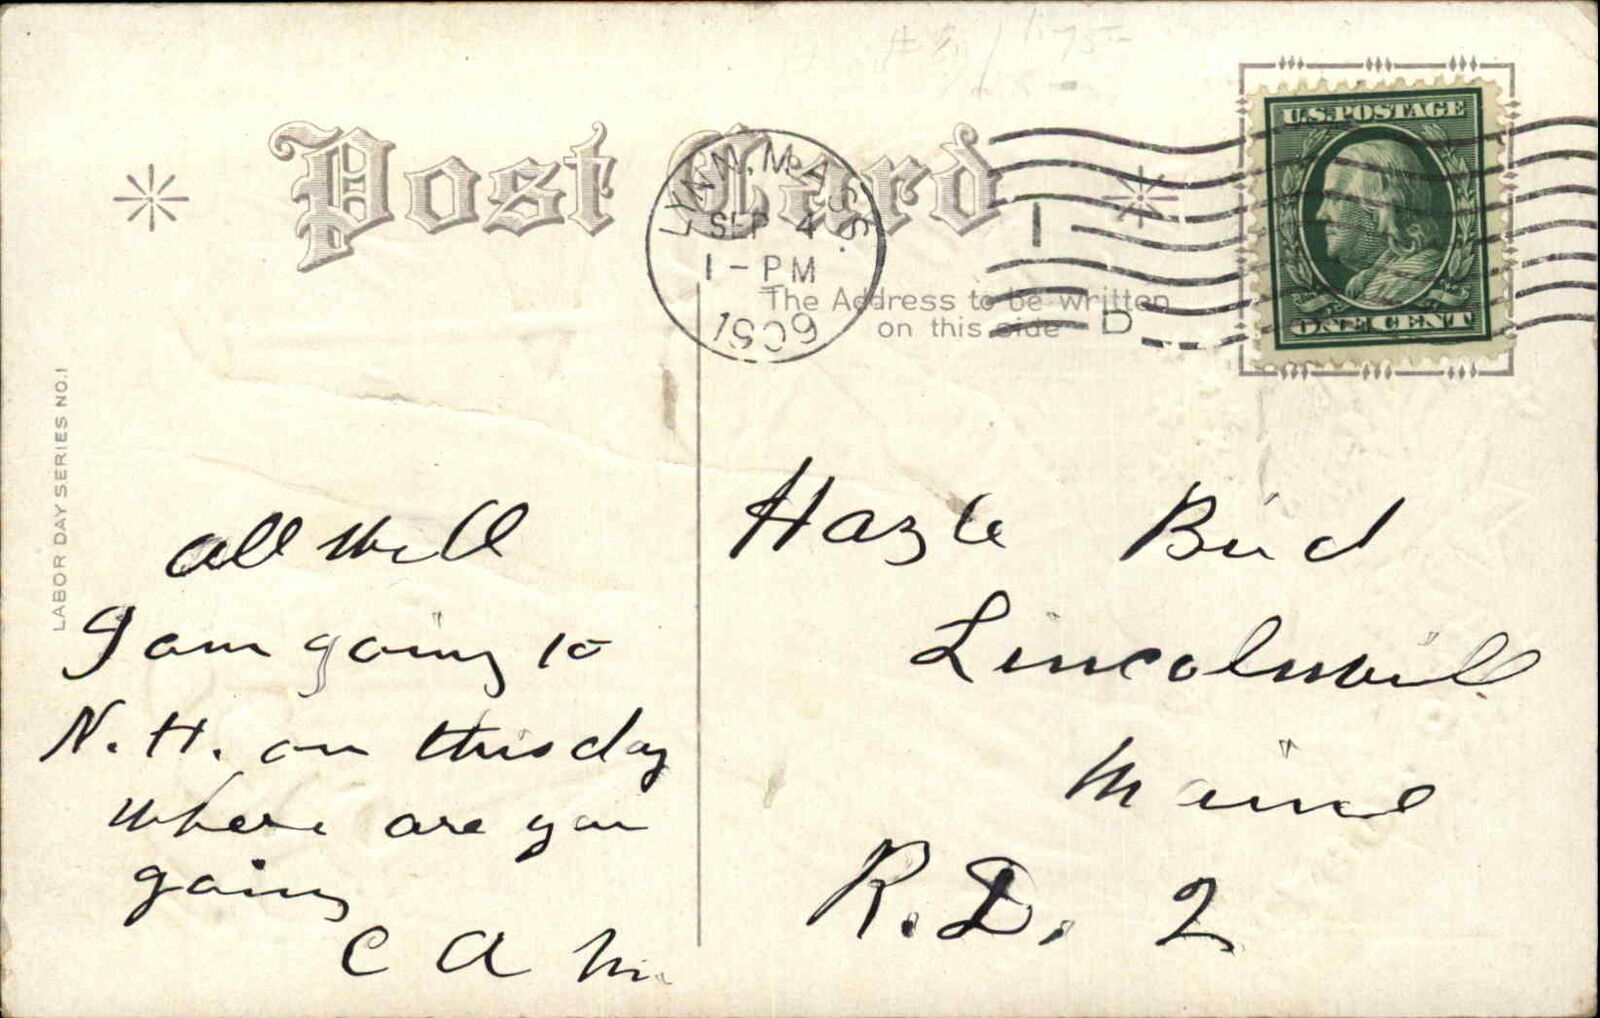 Post Card
LYNN, MASS.
SEP 4
1-PM
1909
1
D
U.S. POSTAGE
ONE CENT
The Address to be written
on this side
LABOR DAY SERIES NO.1
all well
I am going to
N. H. on this day
where are you
going
C A M
Hazle Bird
Lincolnvill
Maine
R. D. 2